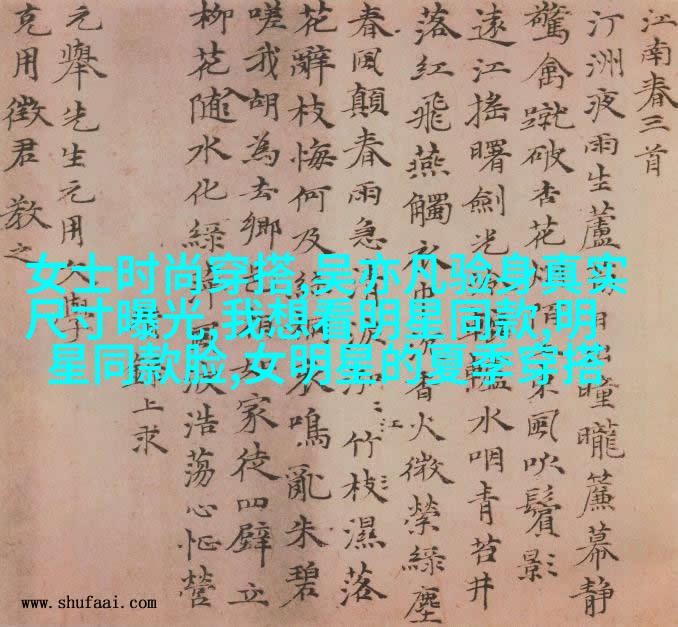 江南春三首
汀洲夜雨生蘆日出曈曨簾幕静
驚禽蹴破杏花烟陌上東風吹鬢影
遠江搖曙劍光冷轆轤水咽青苔井
落紅飛燕觸衣巾香火微縈綠塵
春風顛春雨急清淚江竹枝濕落
花辭枝悔何及絲哀鳴亂朱碧
嗟我胡為去鄉邑相如家徒四壁立
柳花隨水化綠萍風波浩蕩心怔營
錄上求
元舉先生元用文學
克用徵君教之
女士时尚穿搭,吴亦凡验身真实
尺寸曝光,我想看明星同款,明
星同款脸,女明星的夏季穿搭
www.shufaai.com